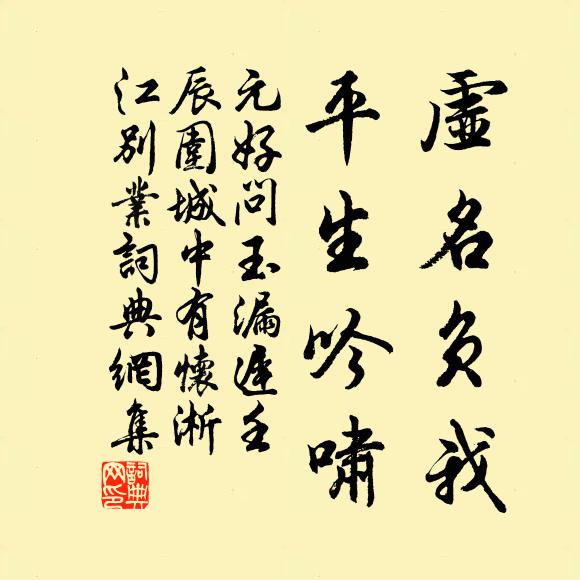 虛名負我
平生吟嘯
元好問玉漏遲壬
辰圍城中有懷淅
江別業詞典網集
詞典網印